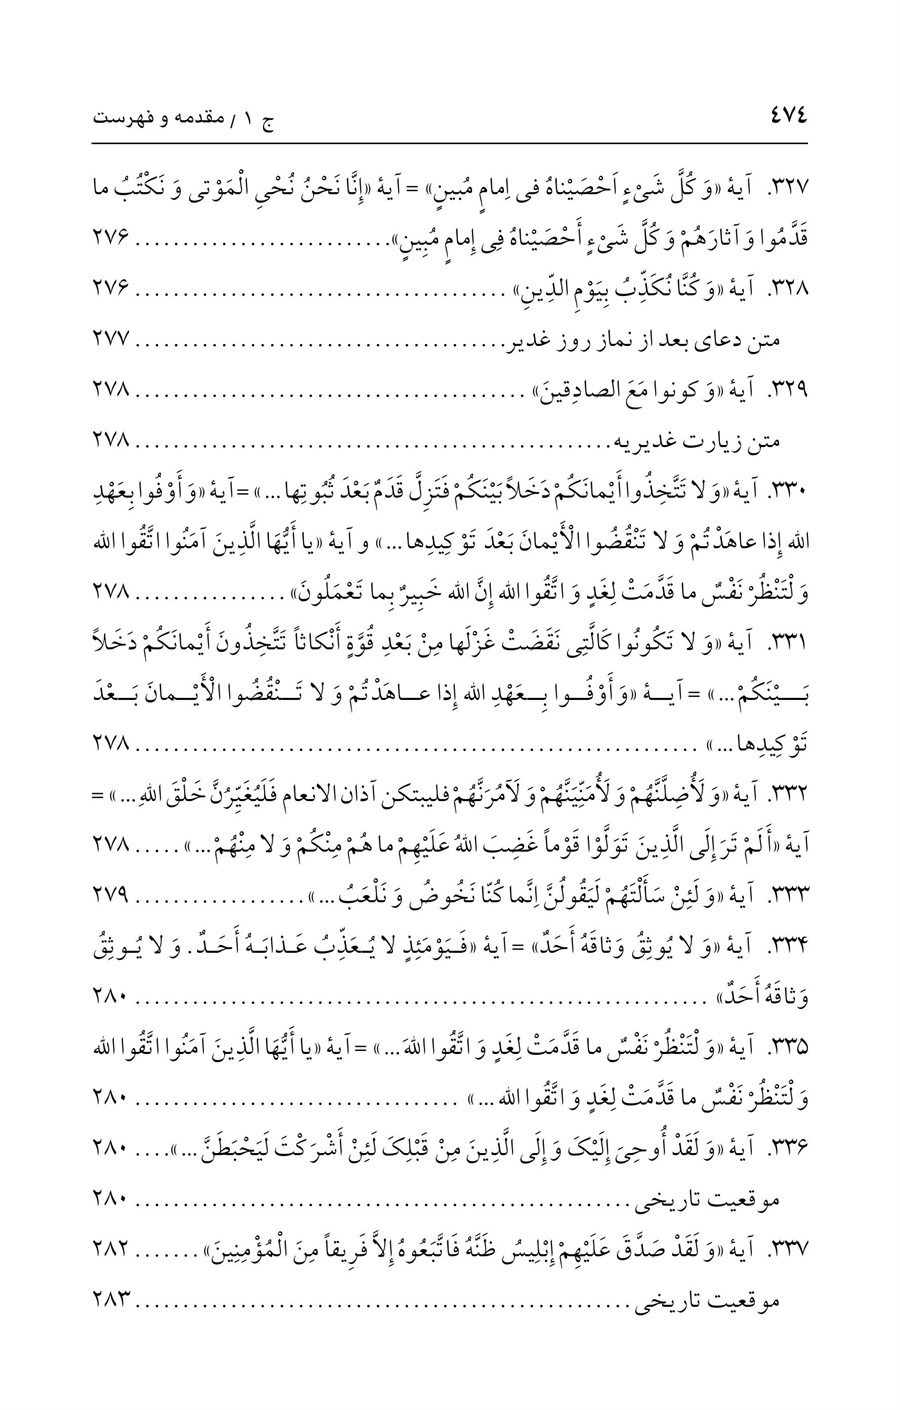 ٤٧٤ ج ١ / مقدمه و فهرست
٣٢٧. آیهٔ «وَ كُلَّ شَیْءٍ اَحْصَیْناهُ فی اِمامٍ مُبینٍ» = آیهٔ «إِنَّا نَحْنُ نُحْیِ الْمَوْتی وَ نَكْتُبُ ما
قَدَّمُوا وَ آثارَهُمْ وَ كُلَّ شَیْءٍ أَحْصَیْناهُ فِی إِمامٍ مُبِینٍ».......................... ٢٧۶
٣٢٨. آیهٔ «وَ كُنَّا نُكَذِّبُ بِیَوْمِ الدِّینِ» ...................................... ٢٧۶
متن دعای بعد از نماز روز غدیر...................................... ٢٧٧
٣٢٩. آیهٔ «وَ كونوا مَعَ الصادِقینَ» ........................................ ٢٧٨
متن زیارت غدیریه................................................. ٢٧٨
٣٣٠. آیهٔ «وَ لا تَتَّخِذُوا أَیْمانَكُمْ دَخَلاً بَیْنَكُمْ فَتَزِلَّ قَدَمٌ بَعْدَ ثُبُوتِها...» =آیهٔ «وَ أَوْفُوا بِعَهْدِ
الله إِذا عاهَدْتُمْ وَ لا تَنْقُضُوا الْأَیْمانَ بَعْدَ تَوْكِیدِها...» و آیهٔ «یا أَیُّهَا الَّذِینَ آمَنُوا اتَّقُوا الله
وَ لْتَنْظُرْ نَفْسٌ ما قَدَّمَتْ لِغَدٍ وَ اتَّقُوا الله إِنَّ الله خَبِیرٌ بِما تَعْمَلُونَ» ................ ٢٧٨
٣٣١. آیهٔ «وَ لا تَكُونُوا كَالَّتِی نَقَضَتْ غَزْلَها مِنْ بَعْدِ قُوَّةٍ أَنْكاثاً تَتَّخِذُونَ أَیْمانَكُمْ دَخَلاً
بَـــیْنَكُمْ...» = آیـــهٔ «وَ أَوْفُـــوا بِـــعَهْدِ الله إِذا عـــاهَدْتُمْ وَ لا تَـــنْقُضُوا الْأَیْـــمانَ بَـــعْدَ
تَوْكِیدِها...» .......................................................... ٢٧٨
٣٣٢. آیهٔ «وَ لَأُضِلَّنَّهُمْ وَ لَأُمَنِّیَنَّهُمْ وَ لَآمُرَنَّهُمْ فلیبتكن آذان الانعام فَلَیُغَیِّرُنَّ خَلْقَ اللهِ...» =
آیهٔ «أَلَمْ تَرَ إِلَی الَّذِینَ تَوَلَّوْا قَوْماً غَضِبَ اللهُ عَلَیْهِمْ ما هُمْ مِنْكُمْ وَ لا مِنْهُمْ...» ..... ٢٧٨
٣٣٣. آیهٔ «وَ لَئِنْ سَأَلْتَهُمْ لَیَقُولُنَّ اِنَّما كُنّا نَخُوضُ وَ نَلْعَبُ...».................. ٢٧٩
٣٣٤. آیهٔ «وَ لا یُوثِقُ وَثاقَهُ أَحَدٌ» = آیهٔ «فَـیَوْمَئِذٍ لا یُـعَذِّبُ عَـذابَـهُ أَحَـدٌ. وَ لا یُـوثِقُ
وَثاقَهُ أَحَدٌ» .......................................................... ٢٨٠
٣٣٥. آیهٔ «وَ لْتَنْظُرْ نَفْسٌ ما قَدَّمَتْ لِغَدٍ وَ اتَّقُوا اللهَ...» = آیهٔ «یا أَیُّهَا الَّذِینَ آمَنُوا اتَّقُوا الله
وَ لْتَنْظُرْ نَفْسٌ ما قَدَّمَتْ لِغَدٍ وَ اتَّقُوا الله...» ................................. ٢٨٠
٣٣۶. آیهٔ «وَ لَقَدْ أُوحِیَ إِلَیْکَ وَ إِلَی الَّذِینَ مِنْ قَبْلِکَ لَئِنْ أَشْرَكْتَ لَیَحْبَطَنَّ...».... ٢٨٠
موقعیت تاریخی................................................... ٢٨٠
٣٣٧. آیهٔ «وَ لَقَدْ صَدَّقَ عَلَیْهِمْ إِبْلِیسُ ظَنَّهُ فَاتَّبَعُوهُ إِلاَّ فَرِیقاً مِنَ الْمُؤْمِنِینَ»....... ٢٨٢
موقعیت تاریخی................................................... ٢٨٣